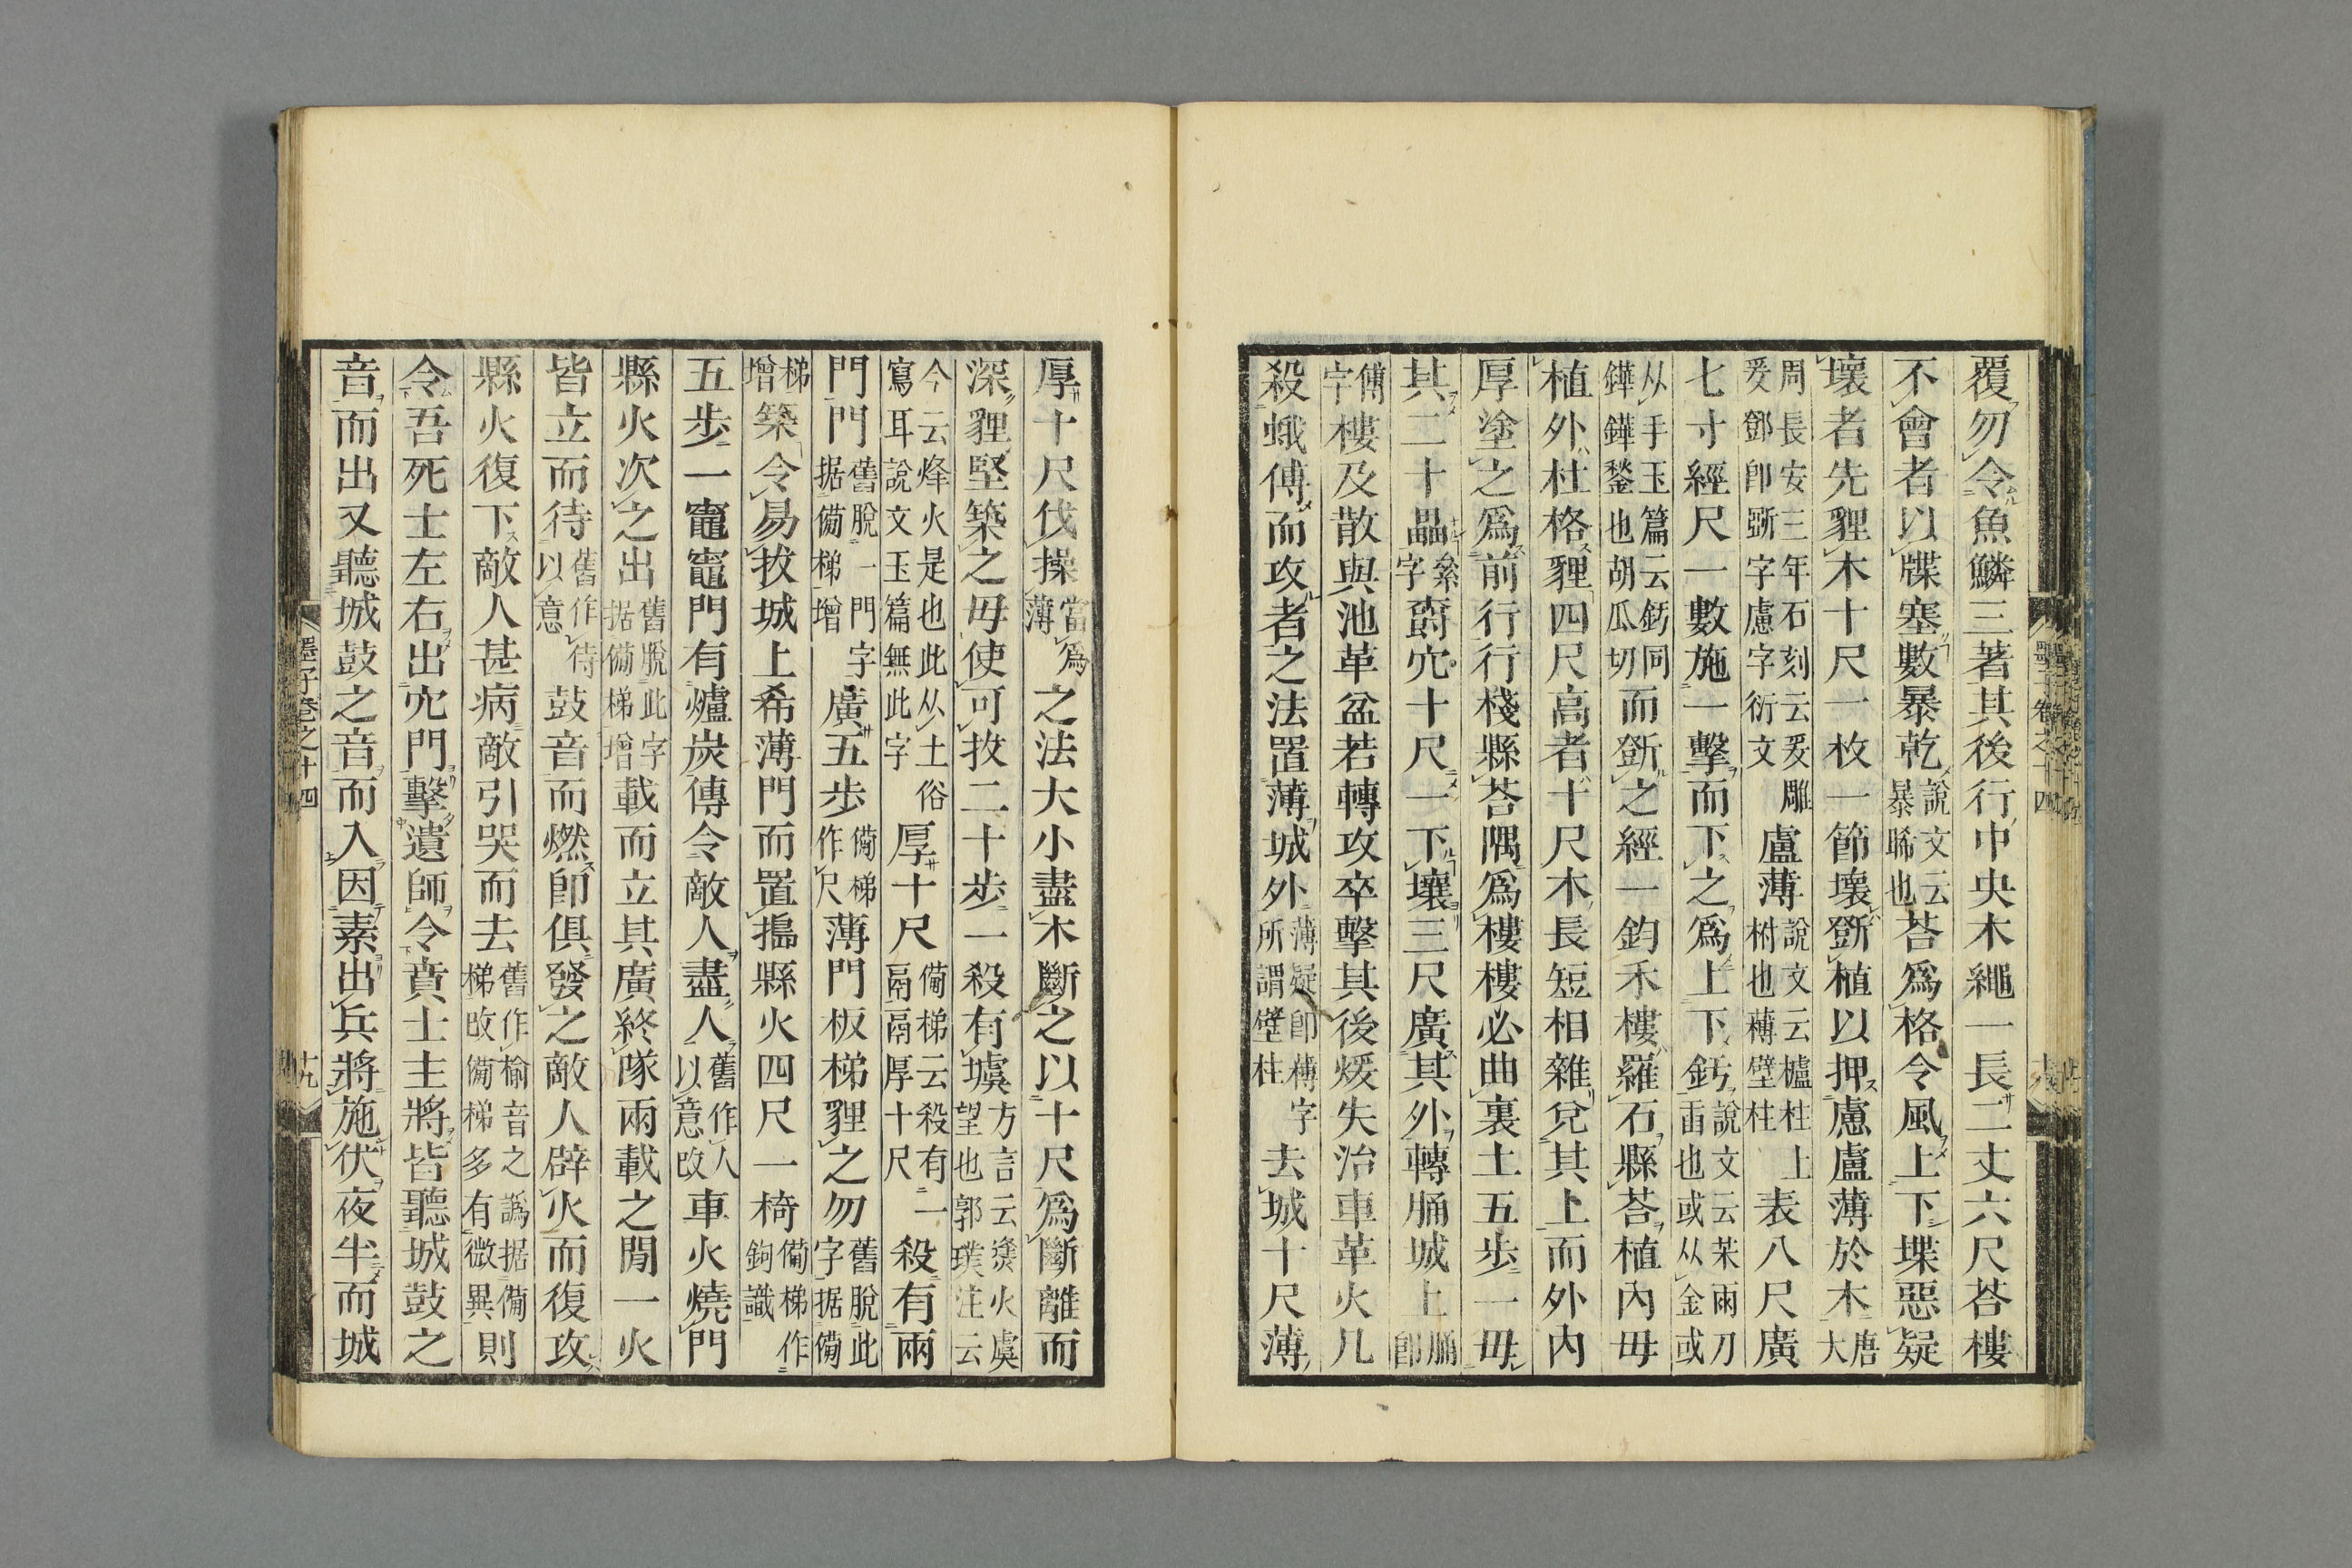 覆勿令魚鱗三著其後行中央木繩一長二丈六尺荅樓
不會者以牒塞數暴乾說文云暴晞也荅爲格令風上下堞惡疑
壞者先貍木十尺一枚一節壞斲植以押慮盧薄於木唐大
周長安三年石刻云爰雕爰鄧卽斲字慮字衍文盧薄說文云櫨柱上柎也欂壁柱表八尺廣
七寸經尺一數施一擊而下之爲上下釫說文云茉兩刃臿也或从金或
从手玉篇云釫同鏵鏵鍫也胡瓜切而斲之經一鈞禾樓羅石縣荅植內毋
植外杜格貍四尺高者十尺木長短相雜兌其上而外內
厚塗之爲前行行棧縣荅隅爲樓樓必曲裏土五步一毋
其二十畾絫字爵穴十尺一下壤三尺廣其外轉𦚢城上𦚢卽
傅字樓及散與池革盆若轉攻卒擊其後煖失治車革火凡
殺蛾傅而攻者之法置薄城外薄疑卽欂字所謂壁柱去城十尺薄
墨子卷之十四
厚十尺伐操當爲薄之法大小盡木斷之以十尺爲斷離而
深貍堅築之毋使可拔二十步一殺有㙨方言云㷭火虞望也郭璞注云
今云烽火是也此从土俗寫耳說文玉篇無此字厚十尺備梯云殺有一鬲鬲厚十尺殺有兩
門門舊脫一門字据備梯增廣五步備梯作尺薄門板梯貍之勿舊脫此字据備
梯增築令易拔城上希薄門而置搗縣火四尺一椅備梯作鉤識
五步一竈竈門有爐炭傳令敵人盡人舊作人以意改車火燒門
縣火次之出舊脫此字据備梯增載而立其廣終隊兩載之閒一火
皆立而待舊作待以意鼓音而燃卽俱發之敵人辟火而復攻
縣火復下敵人甚病敵引哭而去舊作榆音之譌据備梯改備梯多有微異則
令吾死士左右出穴門擊遺師令賁士主將皆聽城鼓之
音而出又聽城鼓之音而入因素出兵將施伏夜半而城
墨子卷之十四
十九